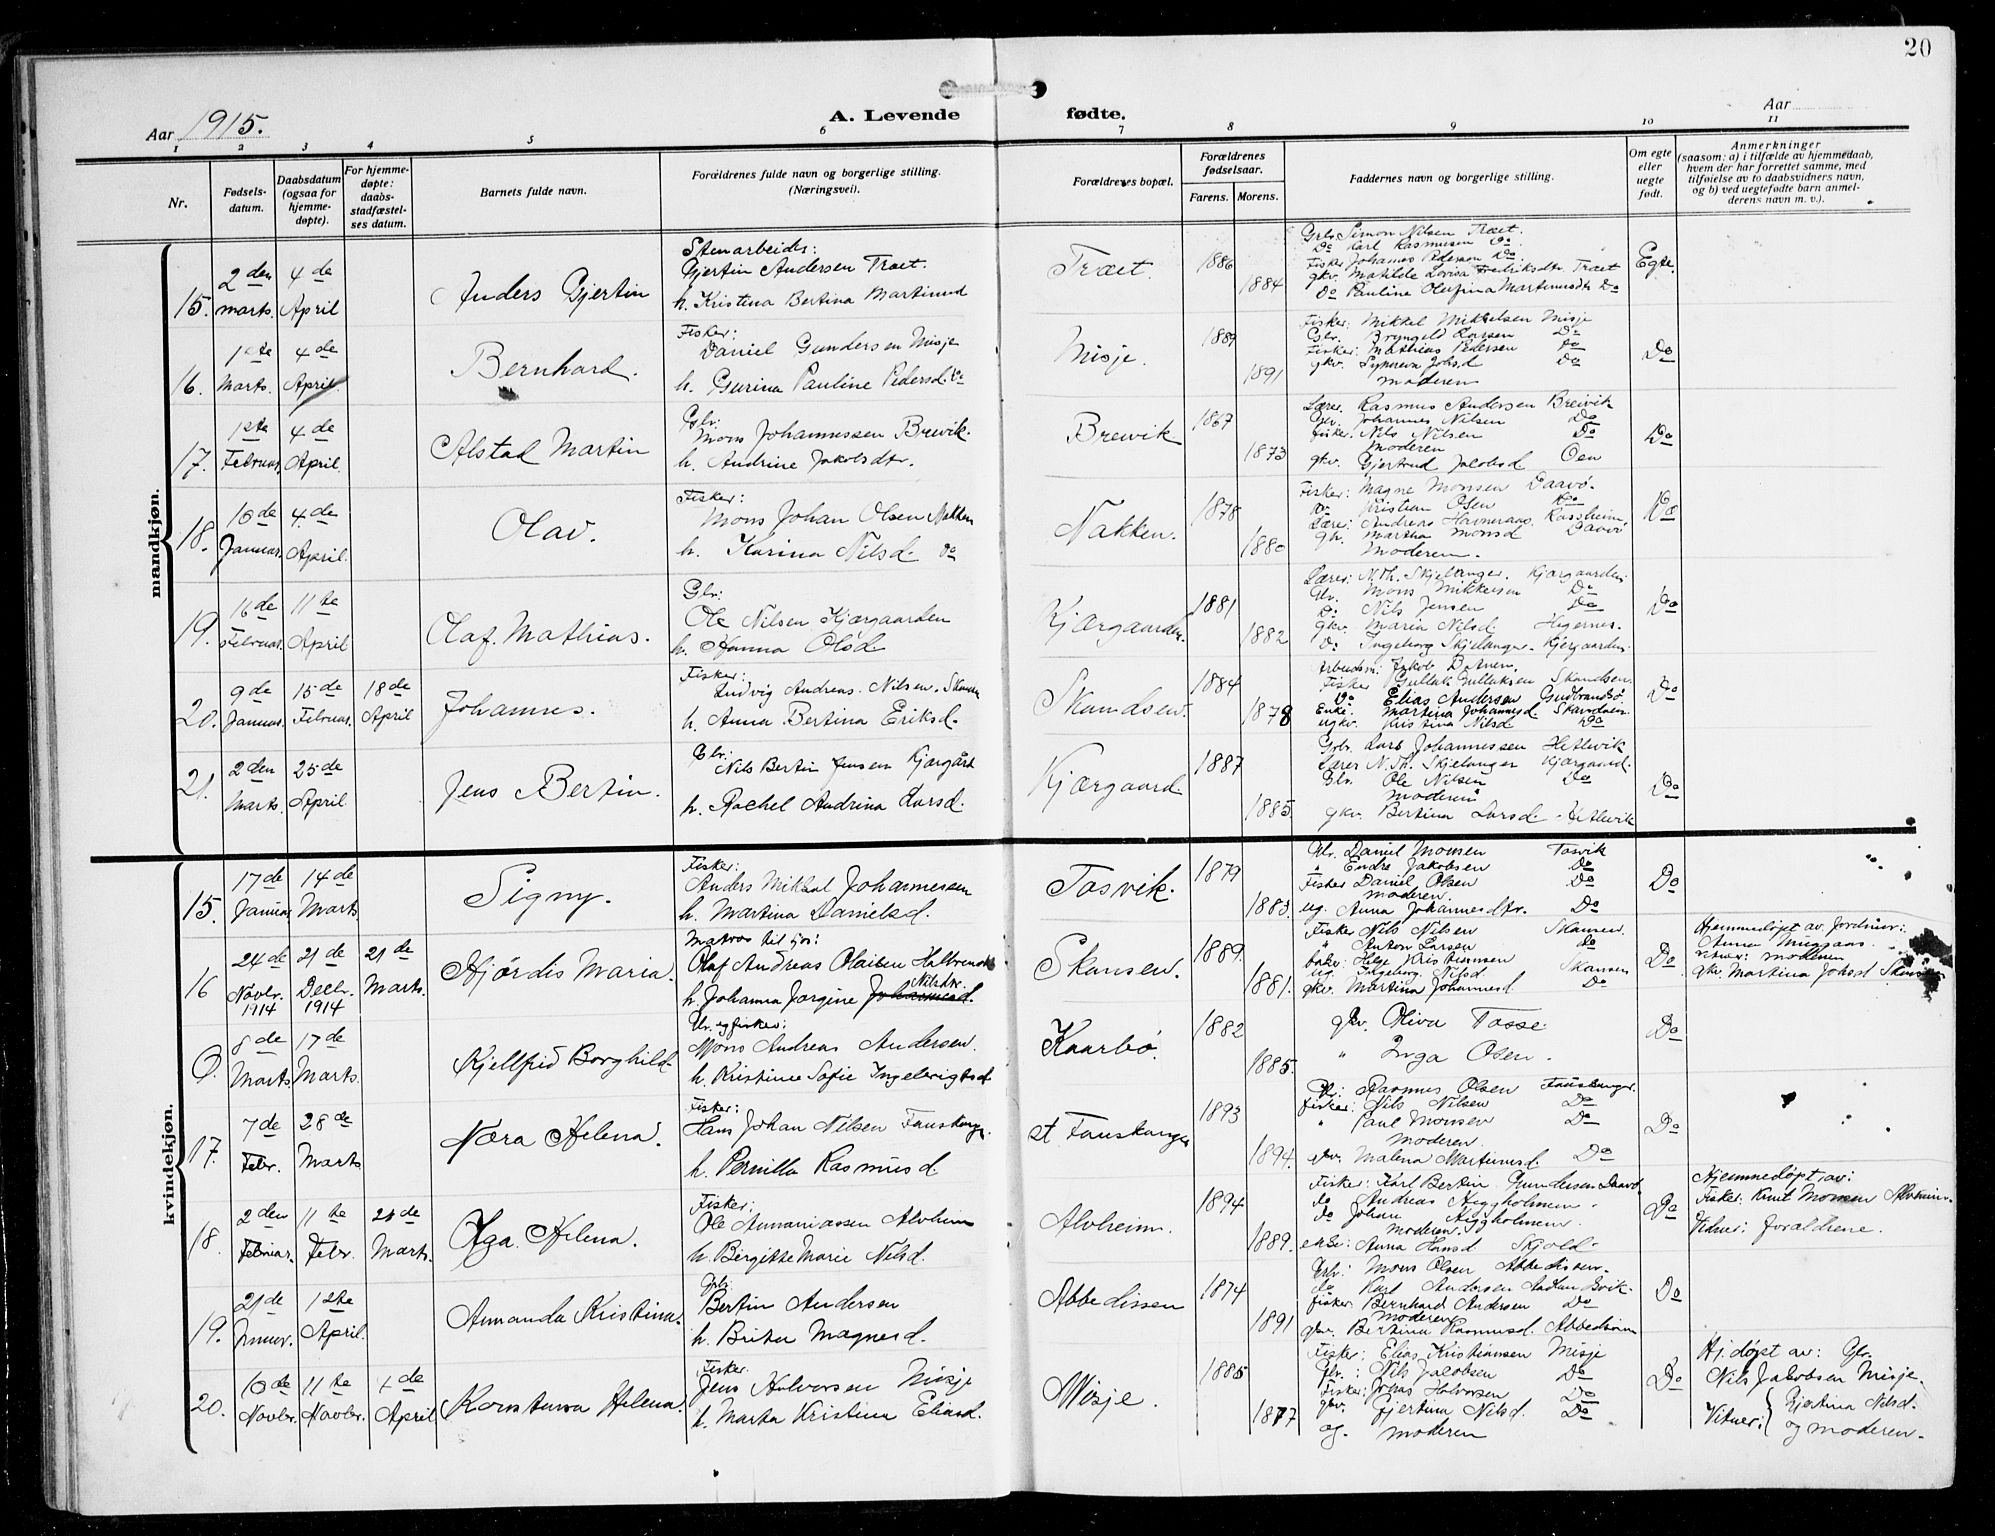 20
Aar 1915.
A. Levende fødte.
Aar
1 2 3 4 5 6 7 8 9 10 11
Nr.
Fødsels-
datum.
Daabsdatum
(ogsaa for
hjemme-
døpte).
For hjemme-
døpte:
daabs-
stadfæstel-
ses datum.
Barnets fulde navn.
Forældrenes fulde navn og borgerlige stilling.
(Næringsvei).
Forældrenes bopæl.
Forældrenes
fødselsaar.
Farens. Morens.
Faddernes navn og borgerlige stilling.
Om egte
eller
uegte
født.
Anmerkninger
(saasom: a) i tilfælde av hjemmedaab,
hvem der har forrettet samme, med
tilføielse av to daabsvidners navn,
og b) ved uegtefødte barn anmel-
derens navn m. v.).
mandkjøn.
15. 2den marts. 4de April
Anders Gjertin
Stenarbeider:
Gjertin Andersen Træt.
h. Kristina Bertina Martinusd
Træt.
1886
1884
Grbr. Simon Nilsen Træt.
Do Karl Rasmusen Do.
Fisker Johannes Pedersen Do
gkv. Matilde Lovisa Fredriksdtr. Træt
Do Pauline Olufina Martinusdtr Do
Egte.
16. 1ste Marts. 4de April.
Bernhard.
Fisker:
Daniel Gundersen Misje
h. Gurina Pauline Pedersd. Do
Misje.
1889
1891
Fisker: Mikkel Mikkelsen Misje
Gbr. Bryngeld Larsen Do
Fisker: Mathias Pedersen Do
gkv. Synneva Johsd Do
moderen
Do
17. 1ste Februar. 4de April.
Alstad Martin
Gbr.
Mons Johannessen Breivik.
h. Andrine Jakobsdtr.
Breivik
1867
1873
Lærer. Rasmus Andersen Breivik
Gbr. Johannes Nilsen Do
Fisker. Nils Nilsen Do
Moderen
gkv. Gjertrud Jacobsd Oen
Do
18. 10de Januar. 4de April.
Olav.
Fisker:
Mons Johan Olsen Nakken
h. Karina Nilsd. Do
Nakken.
1878
1880
Fisker: Magne Monsen Daavø.
Do Kristian Olsen Do
Lærer: Andreas Havneraas. Rossheim
gk. Martha Monsd Daavø
Moderen.
Do
19. 16de Februar. 11te April
Olaf. Mathias.
Gbr:
Ole Nilsen Kjærgaarden
h. Hanna Olsd.
Kjærgaarden.
1881
1882
Lærer: N. Th. Skjelanger. Kjærgaarden.
Gbr. Mons Mikkelsen Do
Do Nils Jensen Do
gkv. Maria Nilsd. Hjernes.
Do Ingeborg Skjelanger. Kjærgaarden.
Do
20. 9de Januar. 15de Februar. 18de April
Johannes.
Fisker:
Ludvig Andreas. Nilsen. Skansen
h. Anna Bertina Eriksd.
Skandsen.
1884
1878
Arbeidsm: Jakob
Fisker Gullak Gullaksen Skandsen.
Do Elias Andersen Gudbrandsø
Enke. Martina Johannesd. Skandsen.
ugkv. Kristina Nilsd Do
Do
21. 2den Marts. 25de April.
Jens Bertin.
Gbr.
Nils Bertin Jensen Kjærgård
h. Rachel Andrina Larsd.
Kjærgaard.
1887
1885.
Gbr. Lars Johannessen Hetlevik
Lærer N. Th. Skjelanger Kjærgaard.
Gbr. Ole Nilsen Do
Moderen
gkv. Bertina Larsd. Hetlevik
Do
kvindekjøn.
15. 17de Januar 14de Marts
Signy.
Fisker:
Anders Mikkal Johannessen
h. Martina Danielsd.
Tosvik.
1879
1883.
Gbr. Daniel Monsen Tosvik
" Endre Jakobsen Do
Fisker Daniel Olsen Do
moderen.
ug. Anna Johannesdtr. Do
Do
16 24de Novbr. 1914 21de Decbr. 1914 21de Marts.
Hjördis Maria.
Matros til sjøs:
Olaf Andreas Olaisen
Nilsdtr.
h. Johanna Jørgine Johannesd.
Skansen.
1889.
1881.
Fisker Nils Nilsen Skansen.
" Anton Larsen Do
Helge Kristiansen
ug. Ingeborg. Nilsd Skansen
gkv. Martina Johannesd Do
Do
Hjemmedøpt av Jordmor:
Anna
Vitner: moderen
gkv. Martina Johsd Skansen
Ø. 8de Marts 17de Marts.
Kjellfrid Borghild.
Gbr. og fisker:
Mons Andreas Andersen.
h. Kristine Sofie Ingebrigtsd
Kaarbø.
1882
1885.
gkv. Oliva Tosse.
" Inga Olsen.
Do
17. 7de Febr. 28de Marts
Nora Helena.
Fisker:
Hans Johan Nilsen Fauskanger.
h. Pernilla Rasmusd
st Fauskanger
1893
1894.
Gbr: Rasmus Olsen Fauskanger.
Fisker: Nils Nilsen Do
" Paul Monsen Do
Moderen.
gkv. Malena Martinusd. Do
Do
18. 2den Februar. 11te Febr. 21de Marts.
Olga. Helena.
Fisker:
Ole Annaniassen Alvheim
h. Bergitte Marie Nilsd.
Alvheim.
1894
1889.
Fisker: Karl Bertin Gundersen Daavø
do Andreas Æggholmen.
do Johan Æggholmen.
Moderen.
enke: Anna Hansd Skjold.
Do
Hjemmedøpt, av:
Fisker. Knut Monsen Alvheim.
Vidner: foraldrene.
19. 21de Januar. 1ste April.
Amanda Kristina.
Gbr.
Bertin Andersen
h. Brita Magnesd.
Abbedissen
1874
1891
Gbr: Mons Olsen Abbedissen.
do Karl Andersen
Fisker. Bernhard Andersen Do
Moderen
gkv. Bertina Rasmusd. Abbedissen
Do
20. 10de Novbr. 11te Novbr. 4de April
Konstansa Helena.
Fisker
Jens Halvorsen Misje
h. Marta Kristina Eliasd.
Misje.
1885
1877
Fisker: Elias Kristiansen Misje
Gbr.: Nils Jacobsen Do
Fisker: Johas Halvorsen Do
gkv. Gjertina Nilsd. Do
og. moderen
Do
Hj. døpt av: Gbr.
Nils Jakobsen Misje.
Vitner: Gjertina Nilsd.
og moderen.